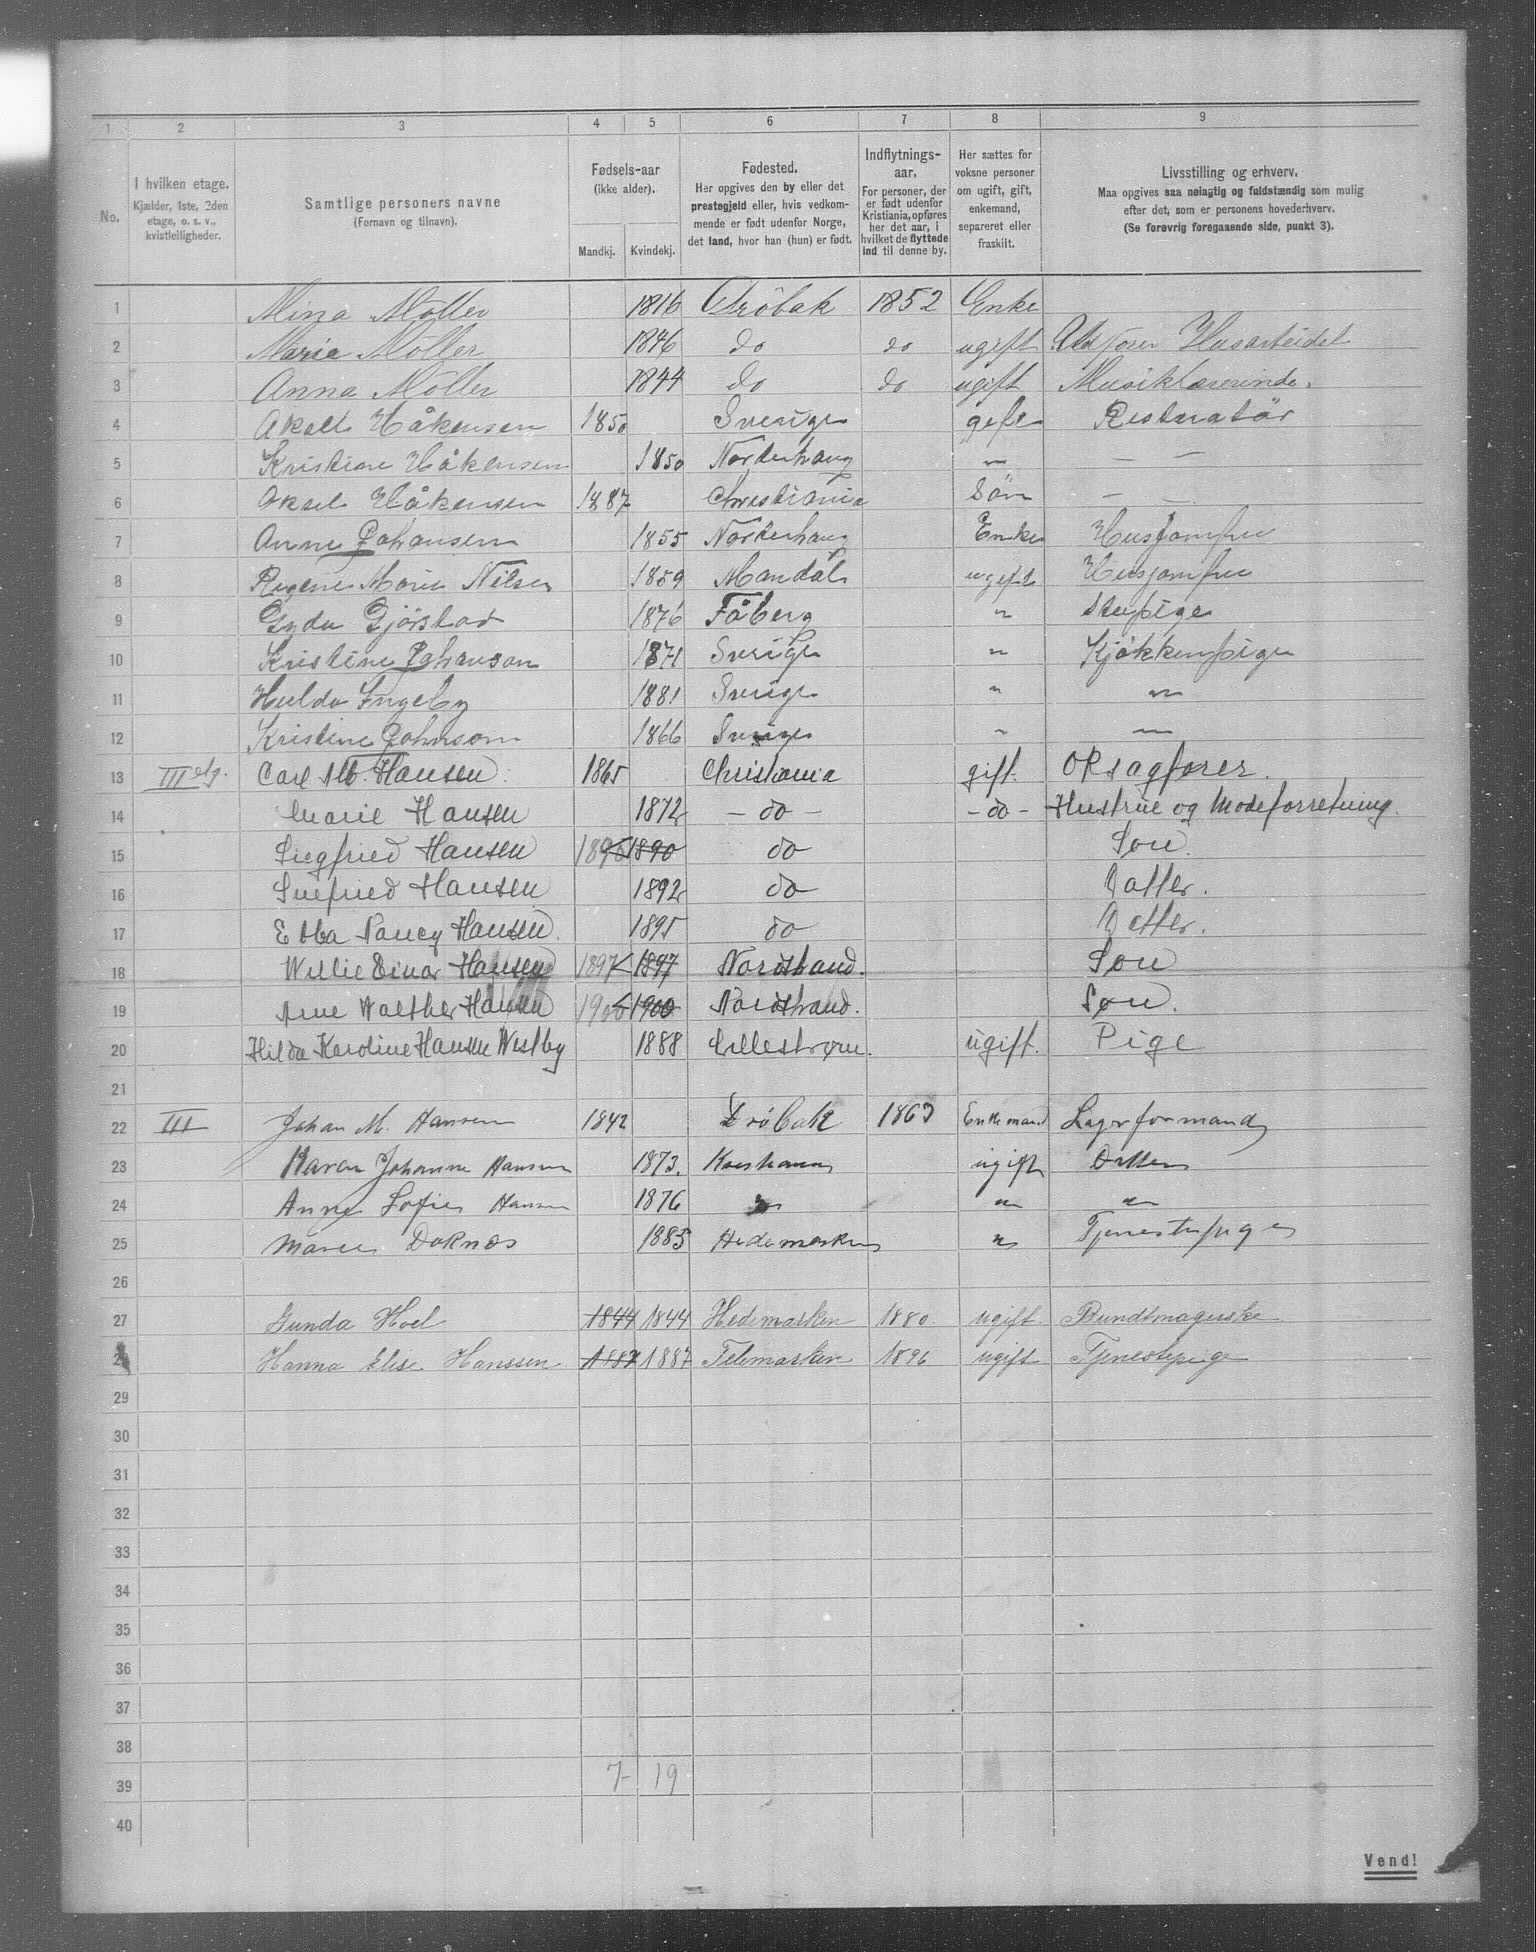 1 2 3 4 5 6 7 8 9
No.
I hvilken etage.
Kjælder, 1ste, 2den
etage, o. s. v.,
kvistleiligheder.
Samtlige personers navne
(Fornavn og tilnavn).
Fødsels-aar
(ikke alder).
Mandkj. Kvindekj.
Fødested.
Her opgives den by eller det
prestegjeld eller, hvis vedkom-
mende er født udenfor Norge,
det land, hvor han (hun) er født.
Indflytnings-
aar.
For personer, der
er født udenfor
Kristiania, opføres
her det aar, i
hvilket de flyttede
ind til denne by.
Her sættes for
voksne personer
om ugift, gift,
enkemand,
separeret eller
fraskilt.
Livsstilling og erhverv.
Maa opgives saa nøiagtig og fuldstændig som mulig
efter det, som er personens hovederhverv.
(Se forøvrig foregaaende side, punkt 3).
1 Mina Möller 1816 Dröbak 1852 Enke
2 Maria Möller 1846 do do ugift Husarbeidet
3 Anna Möller 1844 do do ugift Musiklærerinde.
4 Aksel Håkensen 1850 Sverige gift Restauratör
5 Kristine Håkensen 1850 Norderhaug " — —
6 Aksel Håkensen 1887 Christiania Sön — —
7 Anne Johansen 1855 Norderhaug Enke Husjomfru
8 Regine Marie Nilsen 1859 Mandal ugift Husjomfru
9 Gyda Gjörstad 1876 Fåberg " Stupige
10 Kristine Johanson 1871 Sverige " Kjökkenpige
11 Hulda Ingeby 1881 Sverige " "
12 Kristine Johnsom 1866 Sverige " "
13 III etg. Carl Alb. Hansen 1865 Christiania gift. ORsagfører.
14 Marie Hansen 1872 – do – – do – Hustrue og Modeforretning.
15 Siegfried Hansen 1890 1890 do Søn.
16 Sigfried Hansen 1892 do Datter.
17 Ebba Nancy Hansen. 1895 do Datter.
18 Willie Einar Hansen 1897 1897 Nordstrand. Søn
19 Arne Walther Hansen 1900 1900 Nordstrand. Søn.
20 Hilda Karoline Hansen Westby 1888 Lillestrøm. ugift. Pige
21
22 III Johan M. Hansen 1842 Drøbak 1863 Enkemand Lagerformand
23 Karen Johanne Hansen 1873. Kristiania ugift Datter
24 Anna Sofie Hansen 1876 " " "
25 Marie Doknæs 1885 Hedemarken " Tjenestepige
26
27 Gunda Hoel 1844 1844 Hedemarken 1880. ugift. Bundtmagerske
28 Hanna Elise Hanssen 1887 1887 Telemarken 1896 ugift Tjenestepige
29
30
31
32
33
34
35
36
37
38
39 7 - 19
40
Vend!